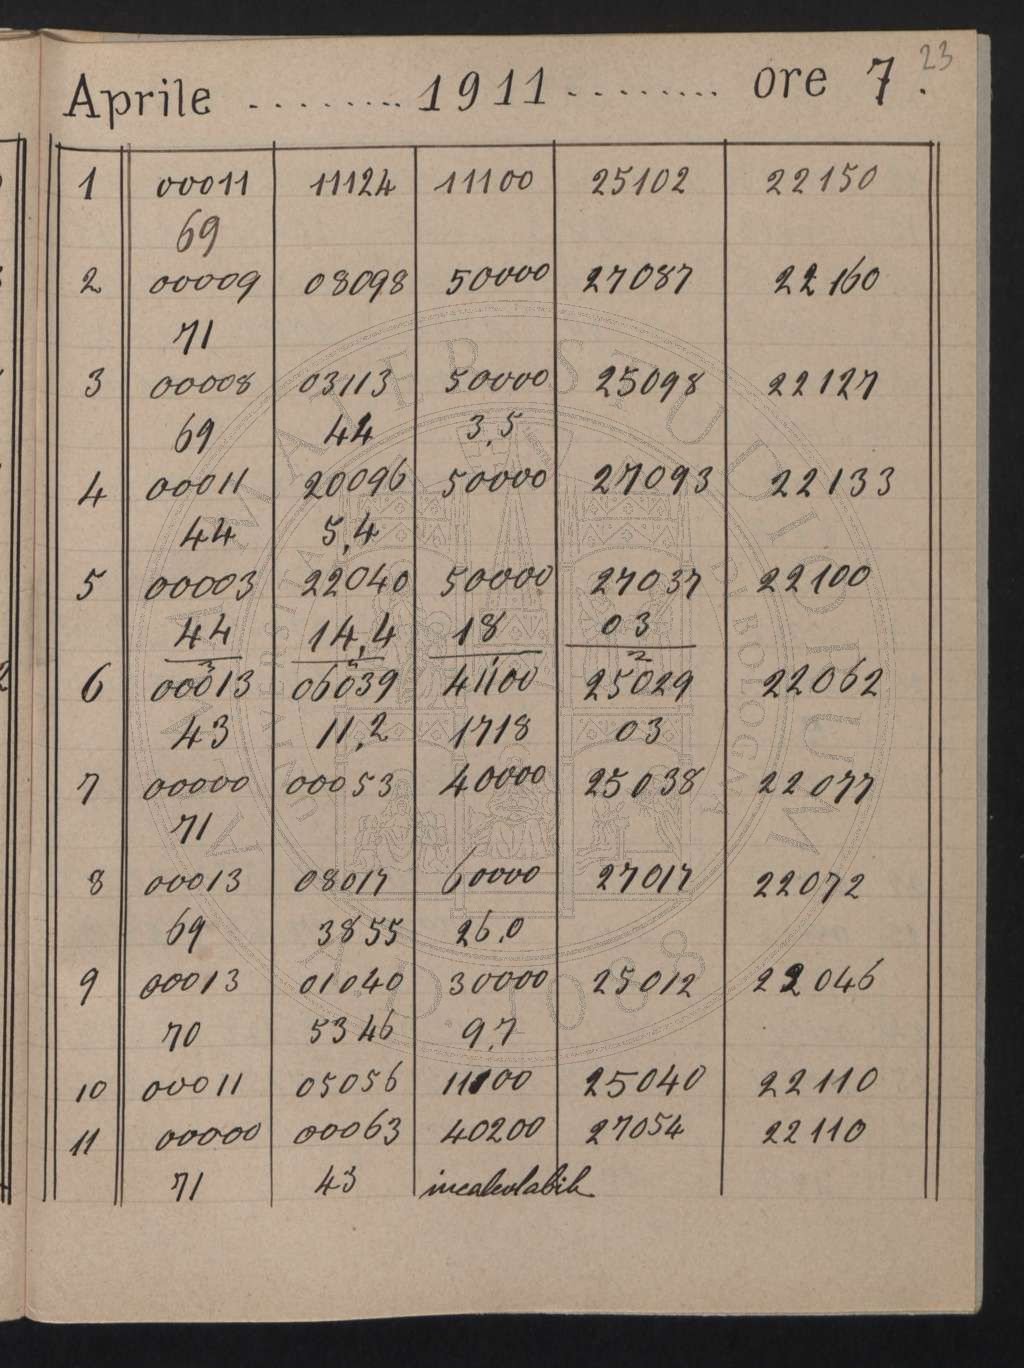 23
Aprile ........ 1911 ........ ore 7.
1 00011 11124 11100 25102 22150
69
2 00009 08098 50000 27087 22160
71
3 00008 03113 50000 25098 22127
69 44 3,5
4 00011 20096 50000 27093 22133
44 5,4
5 00003 22040 50000 27037 22100
44 14,4 18 03
6 00013 06039 41100 25029 22062
43 11,2 1718 03
7 00000 00053 40000 25038 22077
71
8 00013 08017 60000 27017 22072
69 3855 26,0
9 00013 01040 30000 25012 22046
70 5346 9,7
10 00011 05056 11100 25040 22110
11 00000 00063 40200 27054 22110
71 43 incalcolabile
ALMA MATER STUDIORUM
A.D. 1088